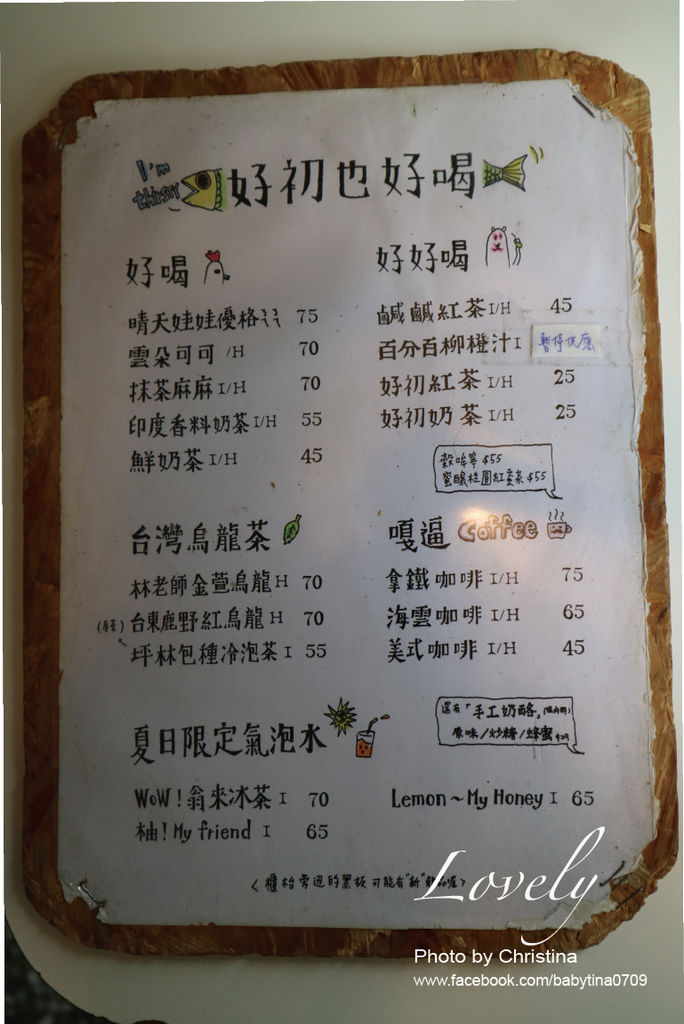 I'm thirsty
好初也好喝
好喝
晴天娃娃優格ㄋㄋ 75
雲朵可可 /H 70
抹茶麻麻 I/H 70
印度香料奶茶 I/H 55
鮮奶茶 I/H 45
好好喝
鹹鹹紅茶 I/H 45
百分百柳橙汁 I 暫停供應
好初紅茶 I/H 25
好初奶茶 I/H 25
穀咘寧 $55
蜜釀桂圓紅棗茶 $55
台灣烏龍茶
林老師金萱烏龍 H 70
台東鹿野紅烏龍 H 70
坪林包種冷泡茶 I 55
嘎逼 Coffee
拿鐵咖啡 I/H 75
海雲咖啡 I/H 65
美式咖啡 I/H 45
還有「手工奶酪」
原味/炒糖/蜂蜜
夏日限定氣泡水
WoW!翁來冰茶 I 70
柚!My friend I 65
Lemon~My Honey I 65
<櫃枱旁邊的黑板可能有"新"飲品喔>
Lovely
Photo by Christina
www.facebook.com/babytina0709